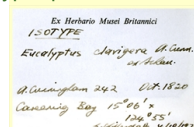 Ex Herbario Musei Britannici
ISOTYPE
Eucalyptus clavigera A.Cunn.
ex Schau.
A.Cunningham 242 Oct. 1820
Careening Bay 15°06' x
124°55'